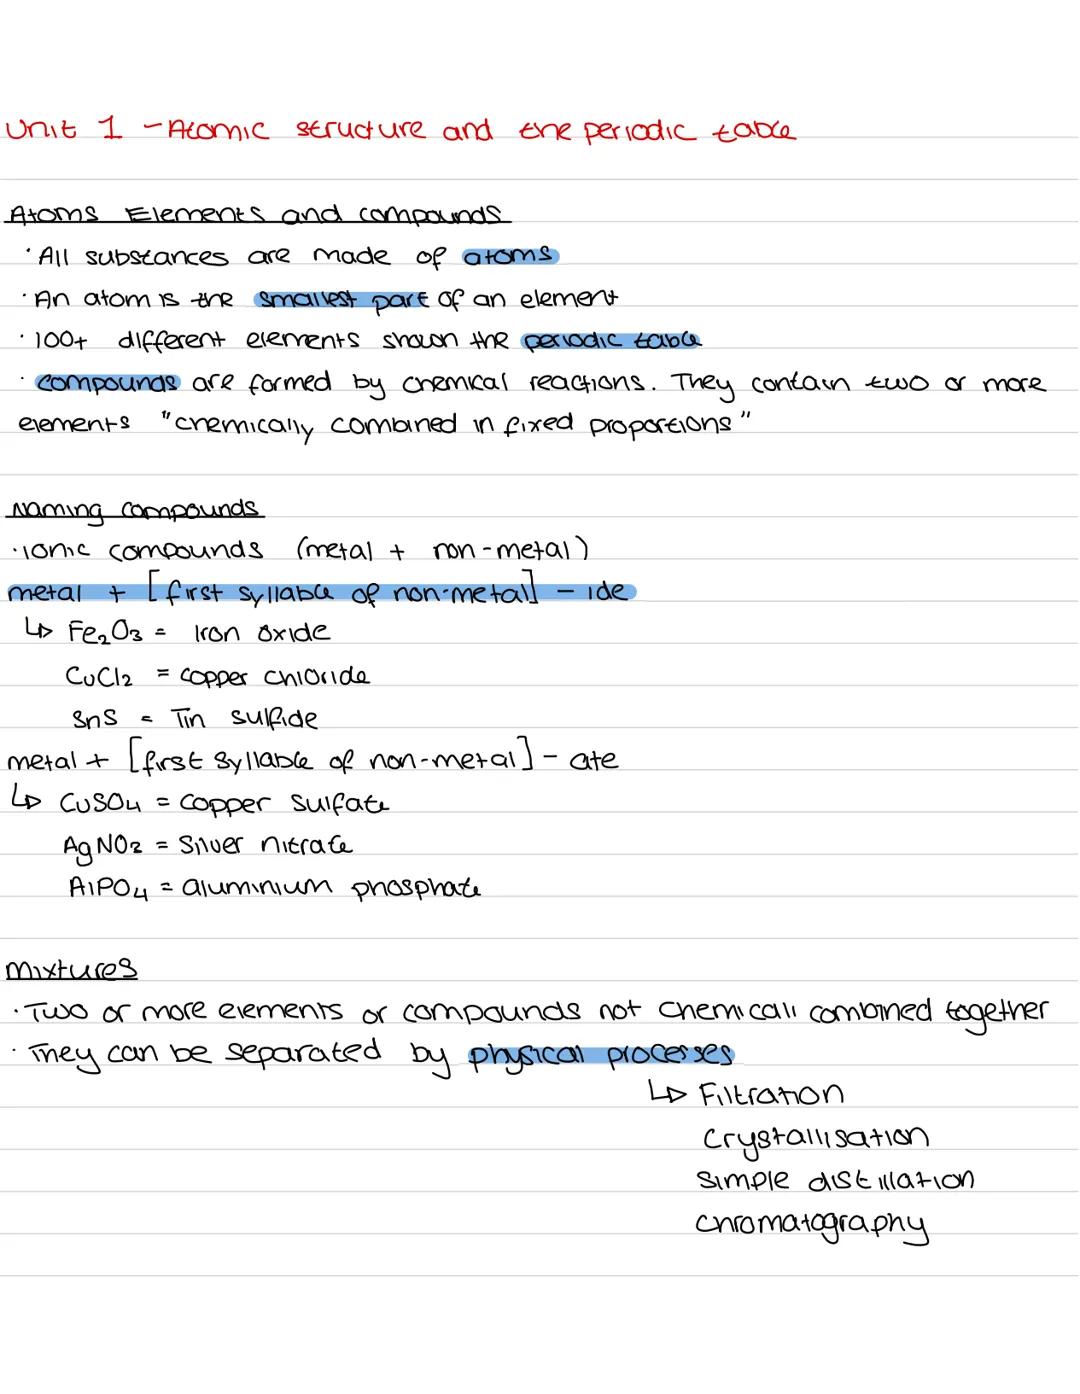 Unit 1 - Atomic structure and the periodic table
Atoms Elements and compounds
· All substances are made of atoms
· An atom is the smallest part of an element
· 100+ different elements shown the periodic table
· compounds are formed by chemical reactions. They contain two or more
elements "chemically combined in fixed proportions"
Naming compounds
· ionic compounds (metal + non-metal)
metal + [first syllable of non-metal] - ide
↳ Fe₂O₃ = Iron oxide
CuCl₂ = copper chloride
SnS = Tin sulfide
metal + [first syllable of non-metal] - ate
↳ CuSO₄ = copper sulfate
AgNO₂ = Silver nitrate
AlPO₄ = aluminium phosphate
Mixtures
· Two or more elements or compounds not chemicall combined together
· They can be separated by physical processes
↳ Filtration
Crystallisation
simple distillation
chromatography